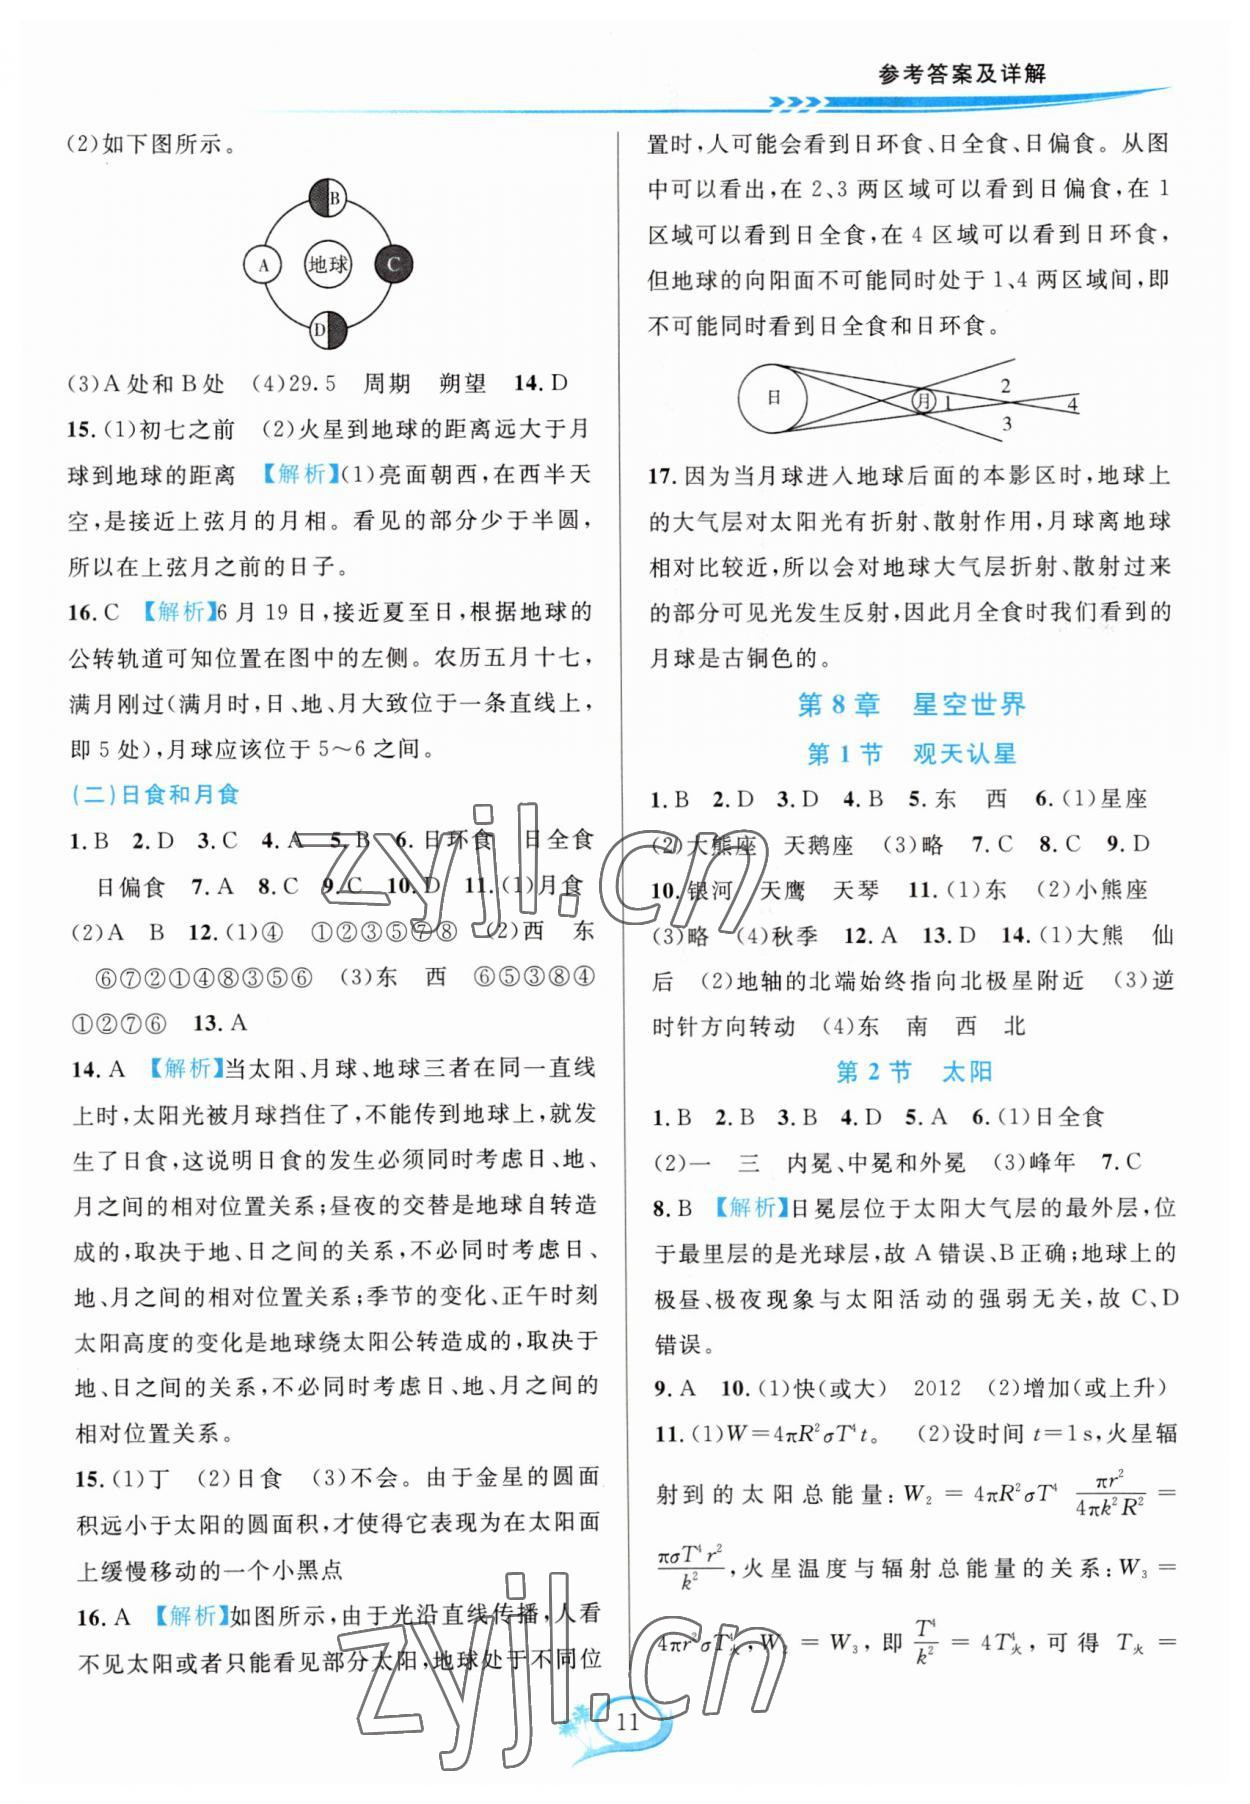 参考答案及详解
(2)如下图所示。
B
A 地球 C
D
(3)A处和B处 (4)29.5 周期 朔望 14.D
15.(1)初七之前 (2)火星到地球的距离远大于月
球到地球的距离 【解析】(1)亮面朝西,在西半天
空,是接近上弦月的月相。看见的部分少于半圆,
所以在上弦月之前的日子。
16.C 【解析】6月19日,接近夏至日,根据地球的
公转轨道可知位置在图中的左侧。农历五月十七,
满月刚过(满月时,日、地、月大致位于一条直线上,
即5处),月球应该位于5~6之间。
(二)日食和月食
1.B 2.D 3.C 4.A 5.B 6.日环食 日全食
日偏食 7.A 8.C 9.C 10.D 11.(1)月食
(2)A B 12.(1)④ ①②③⑤⑦⑧ (2)西 东
⑥⑦②①④⑧③⑤ (3)东 西 ⑥⑤③⑧④
①②⑦⑥ 13.A
14.A 【解析】当太阳、月球、地球三者在同一直线
上时,太阳光被月球挡住了,不能传到地球上,就发
生了日食,这说明日食的发生必须同时考虑日、地、
月之间的相对位置关系;昼夜的交替是地球自转造
成的,取决于地、日之间的关系,不必同时考虑日、
地、月之间的相对位置关系;季节的变化、正午时刻
太阳高度的变化是地球绕太阳公转造成的,取决于
地、日之间的关系,不必同时考虑日、地、月之间的
相对位置关系。
15.(1)丁 (2)日食 (3)不会。由于金星的圆面
积远小于太阳的圆面积,才使得它表现为在太阳面
上缓慢移动的一个小黑点
16.A 【解析】如图所示,由于光沿直线传播,人看
不见太阳或者只能看见部分太阳,地球处于不同位
置时,人可能会看到日环食、日全食、日偏食。从图
中可以看出,在2、3两区域可以看到日偏食,在1
区域可以看到日全食,在4区域可以看到日环食,
但地球的向阳面不可能同时处于1、4两区域间,即
不可能同时看到日全食和日环食。
日 月 1 2 3 4
17.因为当月球进入地球后面的本影区时,地球上
的大气层对太阳光有折射、散射作用,月球离地球
相对比较近,所以会对地球大气层折射、散射过来
的部分可见光发生反射,因此月全食时我们看到的
月球是古铜色的。
第8章 星空世界
第1节 观天认星
1.B 2.D 3.D 4.B 5.东 西 6.(1)星座
(2)大熊座 天鹅座 (3)略 7.C 8.C 9.D
10.银河 天鹰 天琴 11.(1)东 (2)小熊座
(3)略 (4)秋季 12.A 13.D 14.(1)大熊 仙
后 (2)地轴的北端始终指向北极星附近 (3)逆
时针方向转动 (4)东 南 西 北
第2节 太阳
1.B 2.B 3.B 4.D 5.A 6.(1)日全食
(2)一 三 内冕、中冕和外冕 (3)峰年 7.C
8.B 【解析】日冕层位于太阳大气层的最外层,位
于最里层的是光球层,故A错误、B正确;地球上的
极昼、极夜现象与太阳活动的强弱无关,故C、D
错误。
9.A 10.(1)快(或大) 2012 (2)增加(或上升)
11.(1)W=4πR²σT⁴t。 (2)设时间t=1s,火星辐
射到的太阳总能量:W₂=4πR²σT⁴ πr²/4πk²R²=
πσT⁴r²/k²,火星温度与辐射总能量的关系:W₃=
4πr²σT火⁴,W₂=W₃,即T⁴/k²=4T火⁴,可得T火=
11
zyjl.cn
zyjl.cn